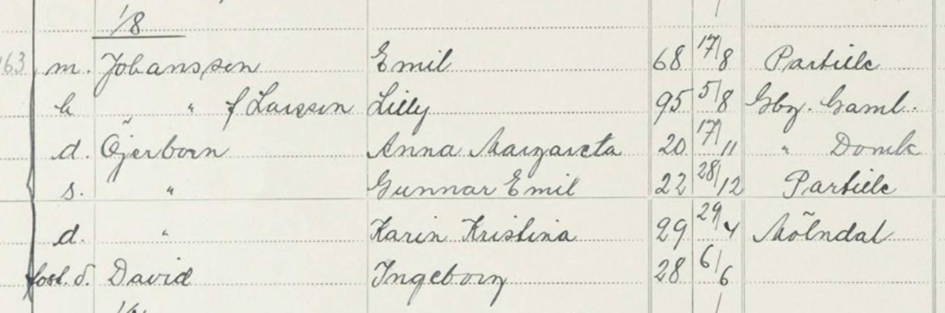 1/8
163 m. Johansson Emil 68 17/8 Partille
h " f Larsson Lilly 95 5/8 Gbg. Gaml.
d. Öjerborn Anna Margareta 20 17/11 " Domk
s. " Gunnar Emil 22 28/12 Partille
d. " Karin Kristina 29 29/4 Mölndal
fost. d. David Ingeborg 28 6/6